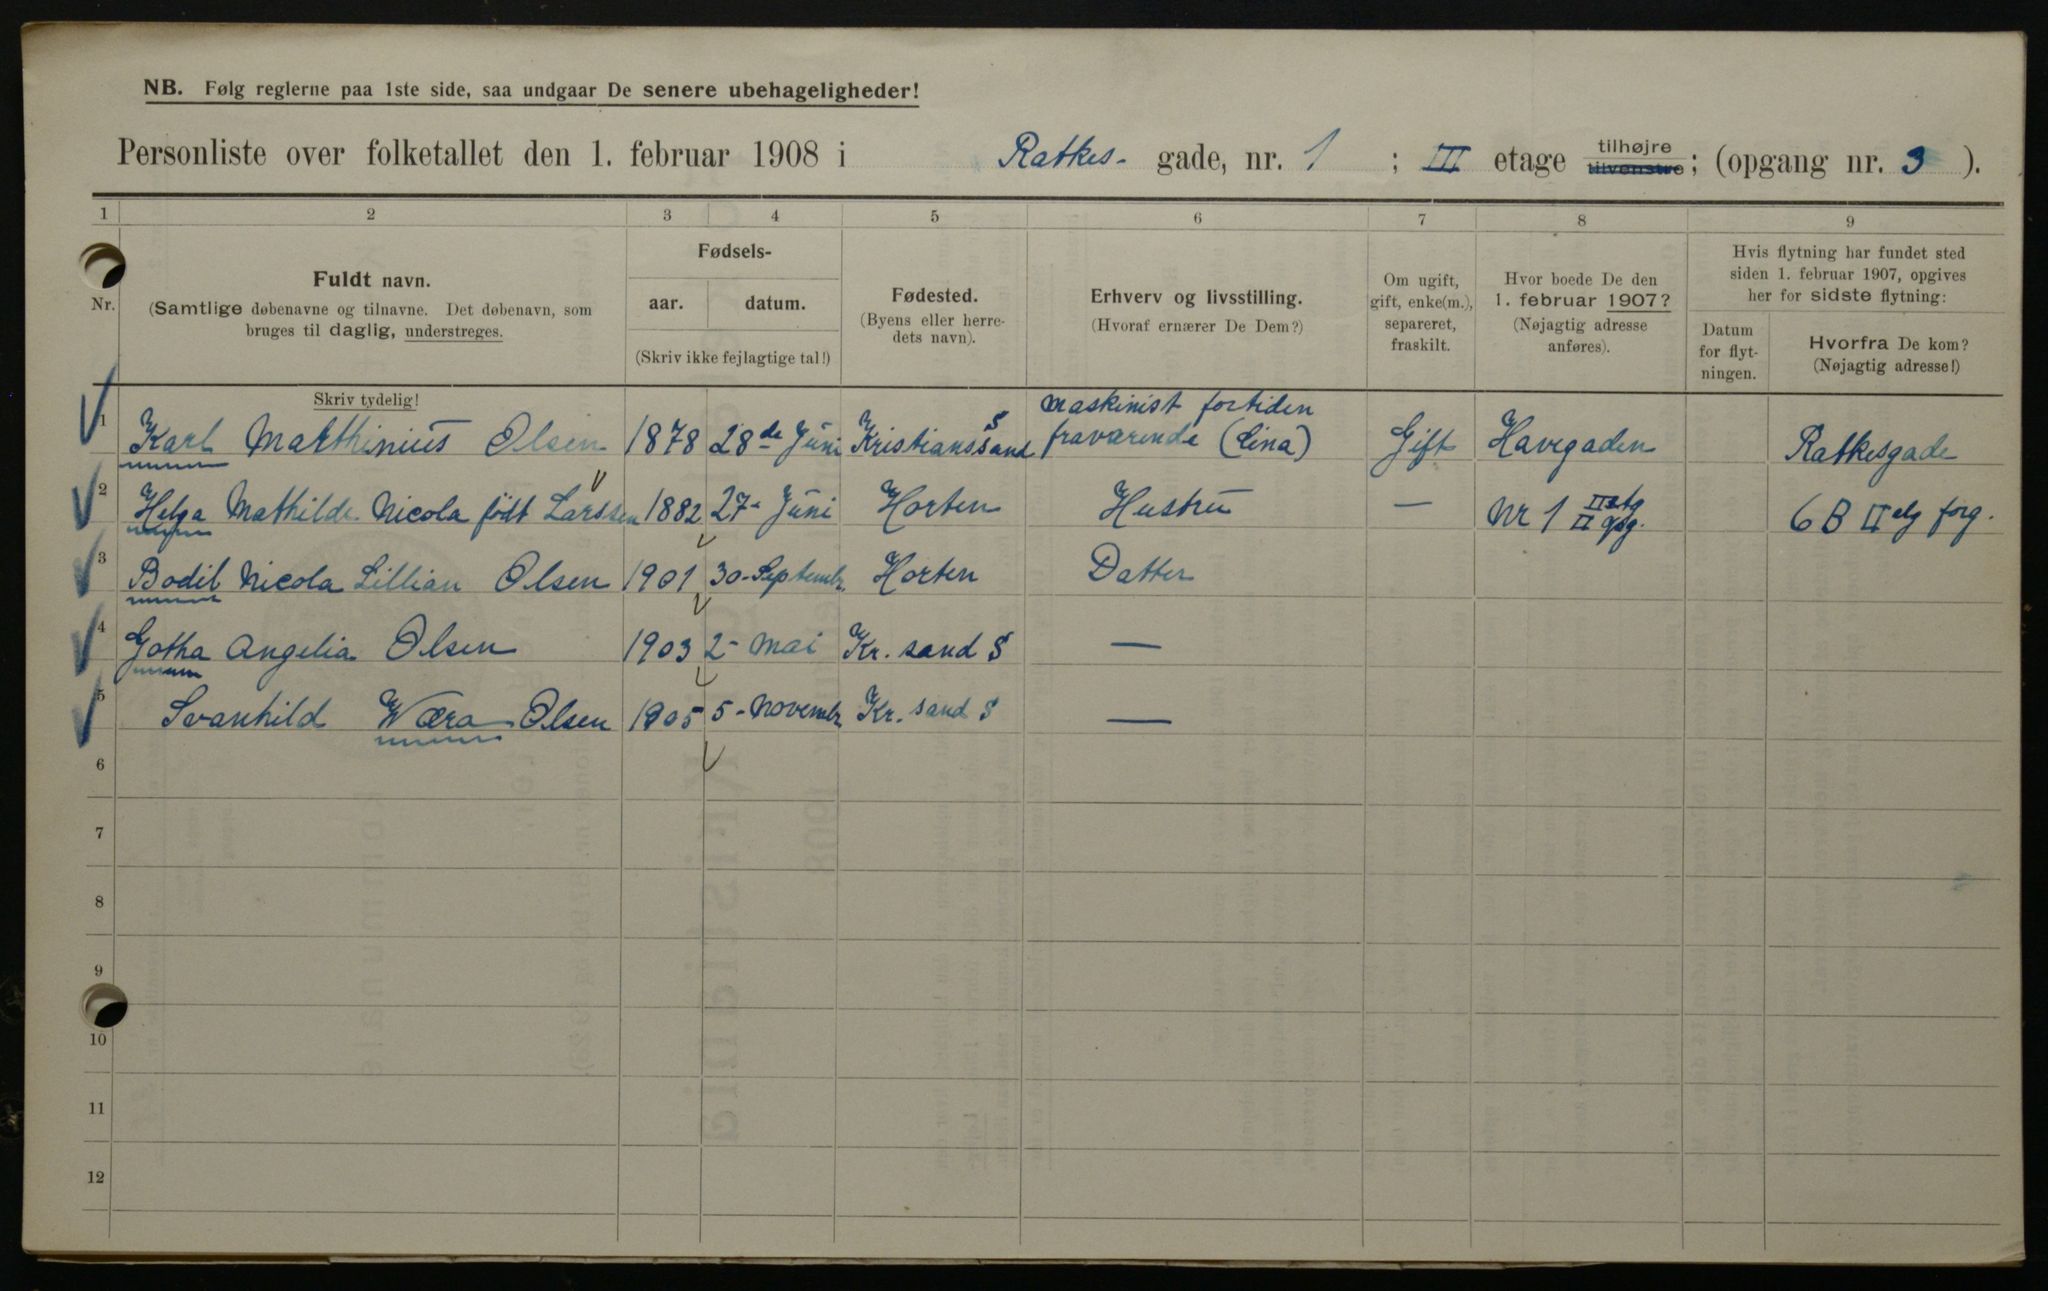 NB. Følg reglerne paa 1ste side, saa undgaar De senere ubehageligheder!
Personliste over folketallet den 1. februar 1908 i Ratkes- gade, nr. 1 ; III etage tilhøjre tilvenstre; (opgang nr. 3 ).
1 2 3 4 5 6 7 8 9
Nr.
Fuldt navn.
(Samtlige døbenavne og tilnavne. Det døbenavn, som
bruges til daglig, understreges.
Skriv tydelig!
Fødsels-
aar. datum.
(Skriv ikke fejlagtige tal!)
Fødested.
(Byens eller herre-
dets navn).
Erhverv og livsstilling.
(Hvoraf ernærer De Dem?)
Om ugift,
gift, enke(m.),
separeret,
fraskilt.
Hvor boede De den
1. februar 1907?
(Nøjagtig adresse
anføres).
Hvis flytning har fundet sted
siden 1. februar 1907, opgives
her for sidste flytning:
Datum
for flyt-
ningen.
Hvorfra De kom?
(Nøjagtig adresse!)
maskinist fortiden
1 Karl Marthinius Olsen 1878 28de Juni Kristianssand S fraværende (Kina) Gift Havegaden Ratkesgade
2 Helga Mathilde Nicola født Larssen 1882 27- Juni Horten Hustru — Nr 1 II etg II opg. 6 B II etg forg.
3 Bodil Nicola Lillian Olsen 1901 30-Septembr. Horten Datter
4 Gotha Angelia Olsen 1903 2- mai Kr. sand S —
5 Svanhild Wæra Olsen 1905 5-Novembr Kr. sand S —
6
7
8
9
10
11
12